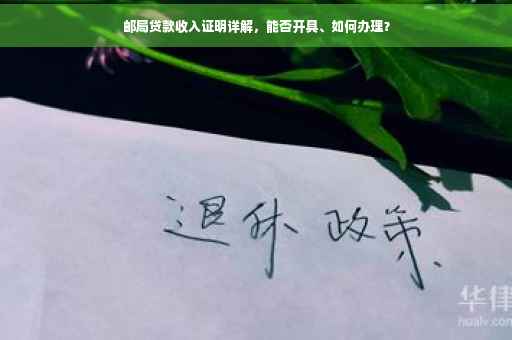 邮局贷款收入证明详解，能否开具、如何办理？
退休 政策
华律
hualv.com